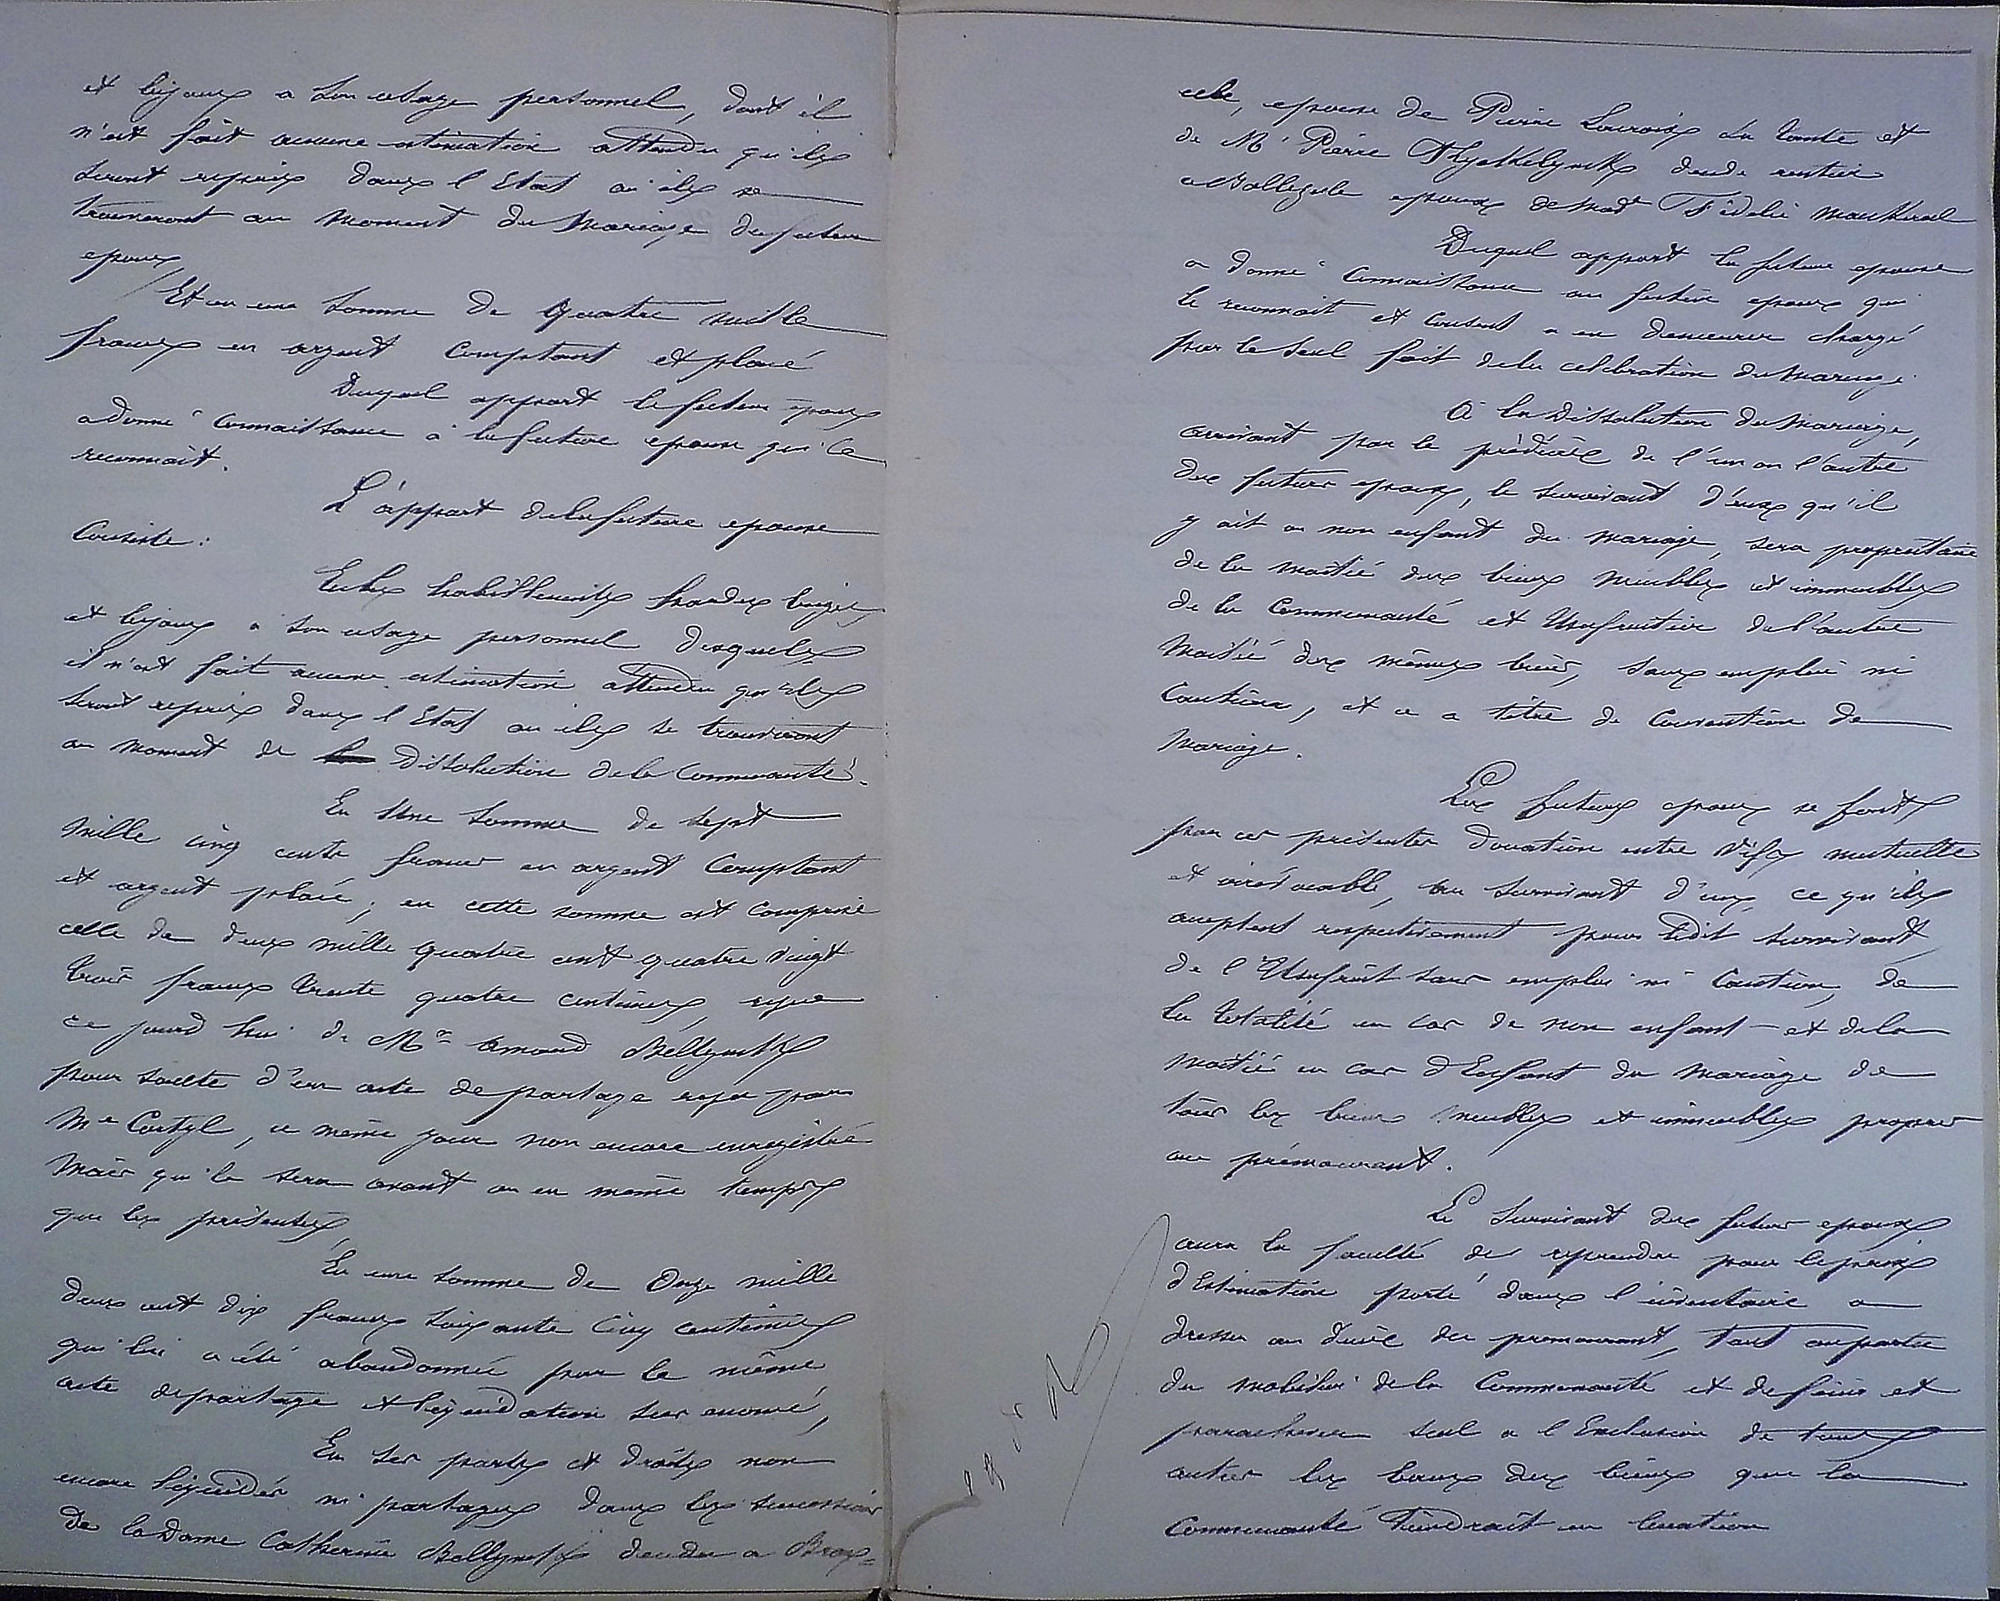 et bijoux a son usage personnel, dont il
n'est fait aucune estimation attendu qu'ils
seront repris dans l'Etat ou ils se
trouveront au moment du Mariage du futur
epoux,
Et en une somme de Quatre mille
francs en argent comptant et placé
Duquel apport le futur epoux
a donné connaissance à la future epouse qui le
reconnait.
L'apport de la future epouse
Consiste :
En les habillements hardes linges
et bijoux à son usage personnel desquels
il n'est fait aucune estimation attendu qu'ils
seront repris dans l'Etat ou ils se trouveront
au moment de la Dissolution de la Communauté.
En Une somme de sept
Mille cinq cents francs en argent Comptant
et argent placé ; en cette somme est comprise
celle de deux mille quatre cent quatre vingt
trois francs trente quatre centimes, reçue
ce jourd'hui de Mr Amand Bellynckx
pour soulte d'un acte de partage reçu par
Me Castyl, ce même jour non encore enregistré
Mais qui le sera avant ou en même temps
que les présentes,
En une somme de Onze mille
deux cent dix francs soixante cinq centimes
qui lui a été abandonnée par le même
acte de partage et liquidation sus enoncé,
En ses parts et droits non
encore liquidés ni partagés dans les successions
de la Dame Catherine Bellynckx decedée a
epouse de Pierre Lacroix sa tante et
de Mr Pierre decede rentier
a Bollezeele epoux de Made Fidelie
Duquel apport la future epouse
a donné connaissance au futur epoux qui
le reconnait et consent a en demeurer chargé
par le seul fait de la celebration du Mariage.
A la Dissolution du Mariage,
arrivant par le prédécès de l'un ou l'autre
des futurs epoux, le survivant d'eux qu'il
y ait ou non enfant du mariage, sera proprietaire
de la moitié des biens Meubles et immeubles
de la Communauté et Usufruitier de l'autre
Moitié des mêmes biens, sans emploi ni
Caution, et ce a titre de Convention de
Mariage.
Les futurs epoux se font
par ces présentes donation entre vifs mutuelle
et irrévocable, au survivant d'eux, ce qu'ils
acceptent respectivement pour ledit survivant,
de l'Usufruit sans emploi ni Caution, de
la totalité en cas de non enfant - et de la
moitié en cas d'Enfant du Mariage de
tous les biens meubles et immeubles propres
au prémourant.
Le Survivant des futurs epoux
aura la faculté de reprendre pour le prix
d'Estimation porté dans l'inventaire a
dresser au décès du premourant, tout ou partie
du mobilier de la Communauté et de finir et
parachever seul a l'Exclusion de tous
autres les baux des biens que la
Communauté tiendrait en location